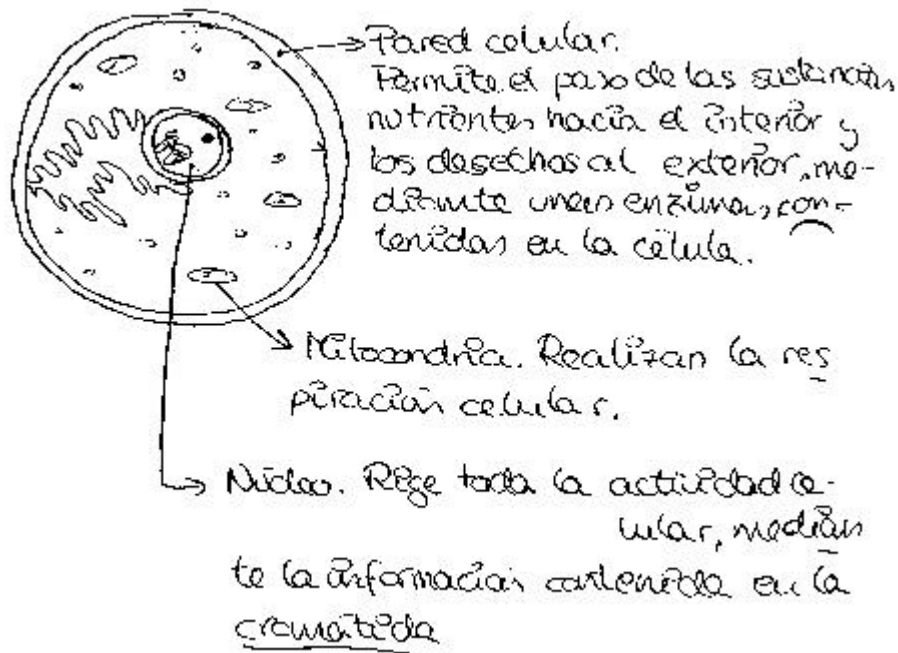 Pared celular.
Permite el paso de las sustancias
nutrientes hacia el interior y
los desechos al exterior, me-
diante unas enzimas, con-
tenidas en la célula.
Mitocondria. Realizan la res
piración celular.
Núcleo. Rige toda la actividad ce-
lular, median
te la información contenida en la
cromátida